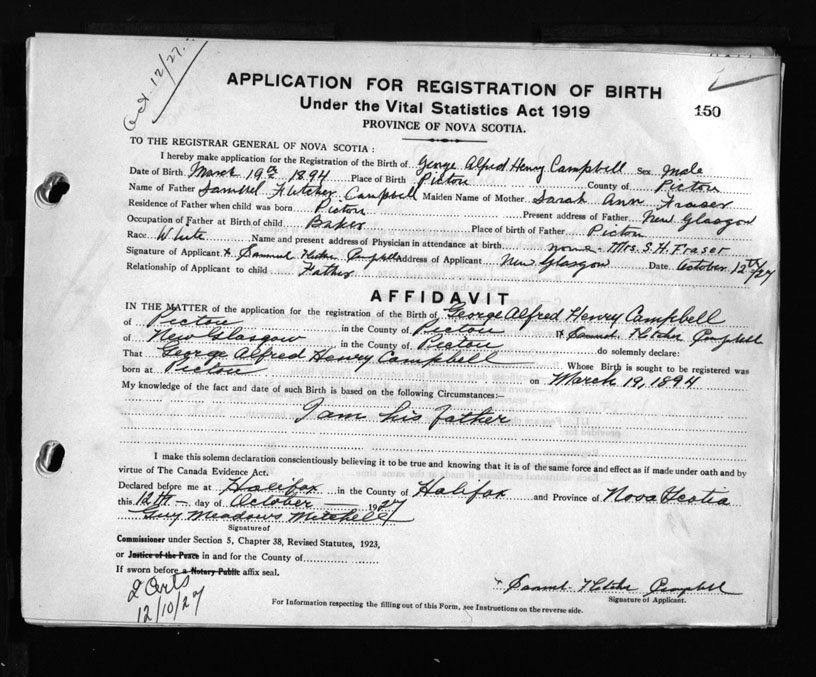 Oct 12/27.
APPLICATION FOR REGISTRATION OF BIRTH
Under the Vital Statistics Act 1919
150
PROVINCE OF NOVA SCOTIA.
TO THE REGISTRAR GENERAL OF NOVA SCOTIA:
I hereby make application for the Registration of the Birth of George Alfred Henry Campbell Sex Male
Date of Birth March 19th 1894 Place of Birth Pictou County of Pictou
Name of Father Samuel Fletcher Campbell Maiden Name of Mother Sarah Ann Fraser
Residence of Father when child was born Pictou Present address of Father New Glasgow
Occupation of Father at Birth of child Baker Place of birth of Father Pictou
Race White Name and present address of Physician in attendance at birth none - Mrs. S.H. Fraser
Signature of Applicant x Samuel Fletcher Campbell Address of Applicant New Glasgow Date October 12th/27
Relationship of Applicant to child Father
AFFIDAVIT
IN THE MATTER of the application for the registration of the Birth of George Alfred Henry Campbell
of Pictou in the County of Pictou I, Samuel Fletcher Campbell
of New Glasgow in the County of Pictou do solemnly declare:
That George Alfred Henry Campbell Whose Birth is sought to be registered was
born at Pictou on March 19, 1894
My knowledge of the fact and date of such Birth is based on the following Circumstances:—
I am his father
I make this solemn declaration conscientiously believing it to be true and knowing that it is of the same force and effect as if made under oath and by
virtue of The Canada Evidence Act.
Declared before me at Halifax in the County of Halifax and Province of Nova Scotia
this 12th day of October 1927
Guy Meadows Mitchell
Signature of
Commissioner under Section 5, Chapter 38, Revised Statutes, 1923,
or Justice of the Peace in and for the County of
If sworn before a Notary Public affix seal.
2 Certs
12/10/27
x Samuel Fletcher Campbell
Signature of Applicant.
For Information respecting the filling out of this Form, see Instructions on the reverse side.